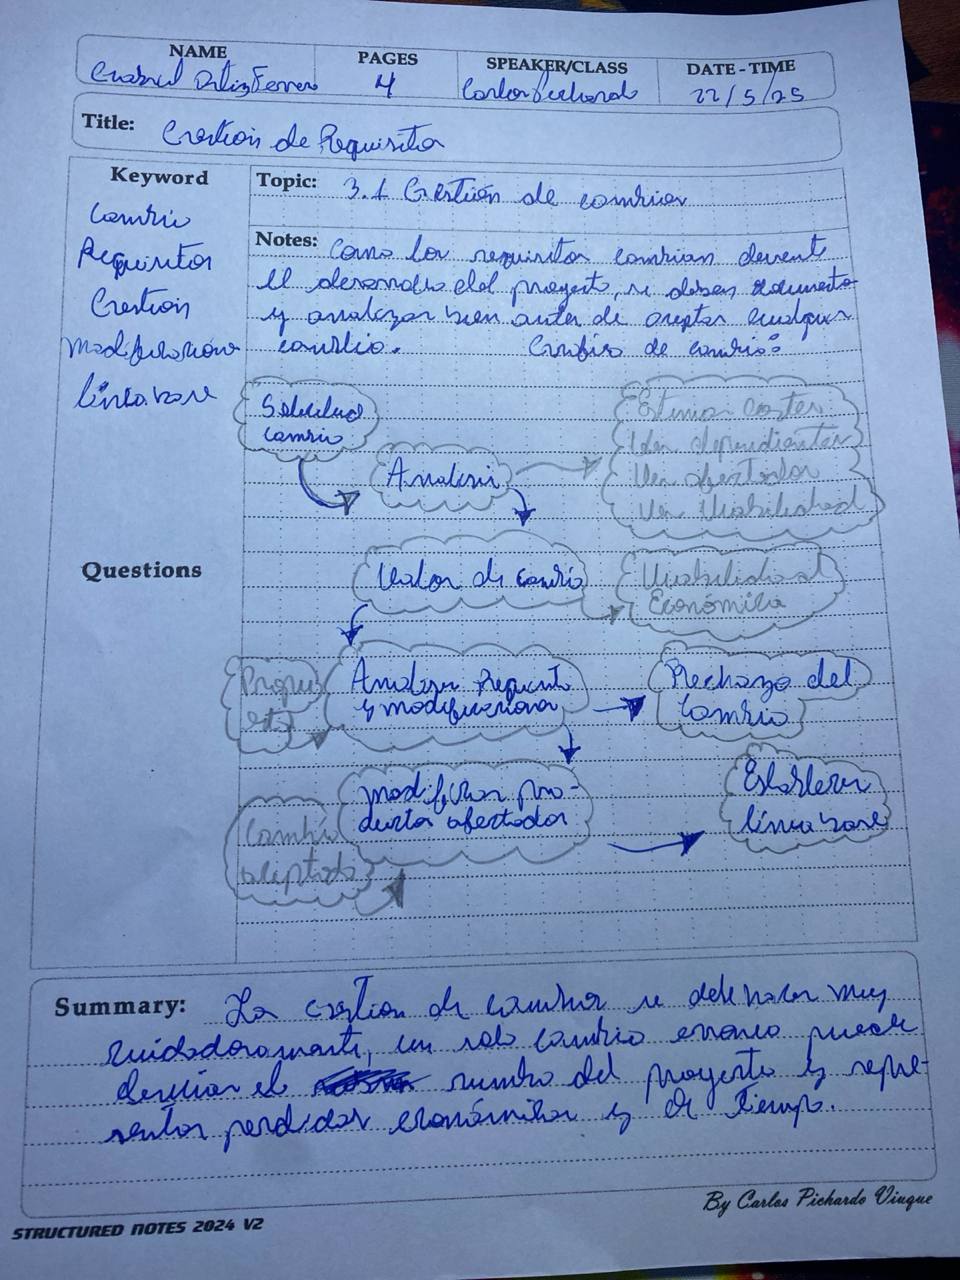 NAME
PAGES
SPEAKER/CLASS
DATE - TIME
4
22/5/25
Title: Gestion de Requisitos
Keyword
Cambio
Requisitos
Gestion
Modificaciones
línea base
Questions
Topic: 3.1 Gestión de cambios
Notes: Como los requisitos cambian durante
el desarrollo del proyecto, se deben documentar
y analizar bien antes de aceptar cualquier
cambio. de cambio:
Solicitud
cambio
Analisis
Estimar costes
Ver dependientes
Ver afectados
Ver Viabilidad
Valor de cambio
Viabilidad
Económica
Propu
esta
Analizar Requisito
y modificaciones
Rechazo del
Cambio
Modificar pro-
ductos afectados
Cambio
aceptado
Establecer
línea base
Summary: La gestion de cambios se debe hacer muy
cuidadosamente, un solo cambio erroneo puede
desviar el rumbo del proyecto y repre-
sentar perdidas económicas y de tiempo.
By Carlos Pichardo Viuque
STRUCTURED NOTES 2024 V2